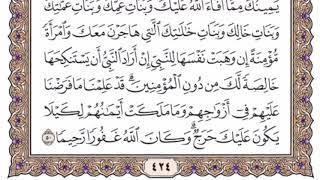 يَمِينُكَ مِمَّآ أَفَآءَ ٱللَّهُ عَلَيْكَ وَبَنَاتِ عَمِّكَ وَبَنَاتِ عَمَّـٰتِكَ
وَبَنَاتِ خَالِكَ وَبَنَاتِ خَـٰلَـٰتِكَ ٱلَّـٰتِى هَاجَرْنَ مَعَكَ وَٱمْرَأَةً
مُّؤْمِنَةً إِن وَهَبَتْ نَفْسَهَا لِلنَّبِىِّ إِنْ أَرَادَ ٱلنَّبِىُّ أَن يَسْتَنكِحَهَا
خَالِصَةً لَّكَ مِن دُونِ ٱلْمُؤْمِنِينَ ۗ قَدْ عَلِمْنَا مَا فَرَضْنَا
عَلَيْهِمْ فِىٓ أَزْوَٰجِهِمْ وَمَا مَلَكَتْ أَيْمَـٰنُهُمْ لِكَيْلَا
يَكُونَ عَلَيْكَ حَرَجٌ ۗ وَكَانَ ٱللَّهُ غَفُورًا رَّحِيمًا ٥٠
٤٢٤